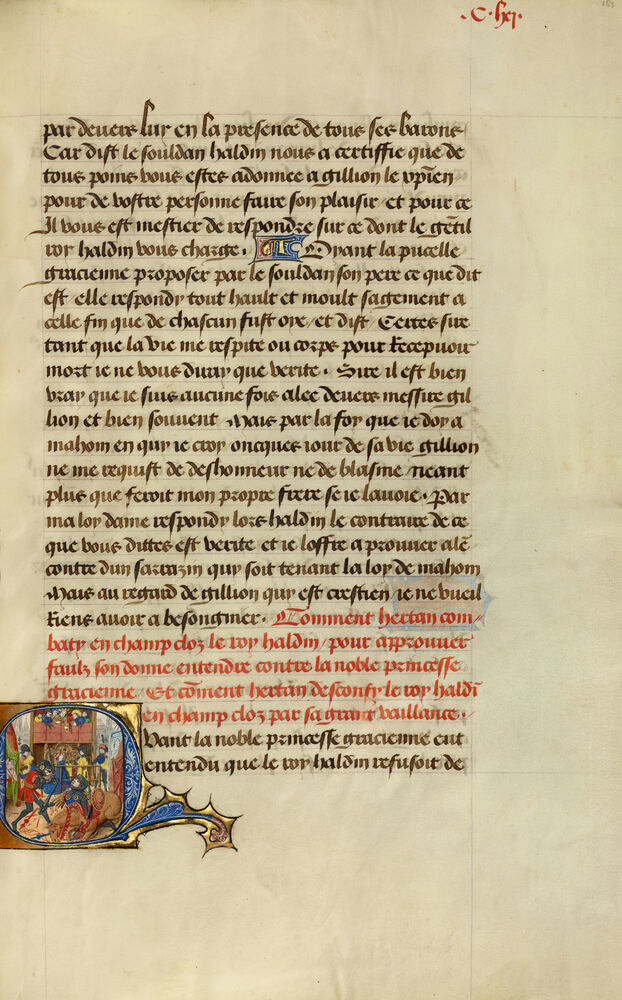 .C. lxj.
par deuers luy en la presence de tous ses barons
Car dist le souldan haldin nous a certiffie que de
tous poins vous estes adonnee a gillion le xpien
pour de vostre personne faire son plaisir et pour ce
Il vous est mestier de respondre sur ce dont le gentil
roy haldin vous charge . Oyant la pucelle
gracienne proposer par le souldan son pere ce que dit
est elle respondy tout hault et moult sagement a
celle fin que de chascun fust oye / et dist / Certes sire
tant que la vie me respite ou corps pour Recepuoir
mort ie ne vous diray que verite . Sire il est bien
vray que ie suis aucune fois alee deuers messire gil
lion et bien souuent Mais par la foy que ie doy a
mahom en quy ie croy oncques iour de sa vie gillion
ne me requist de deshonneur ne de blasme neant
plus que feroit mon propre frere se ie lauoie . Par
ma loy dame respondy lors haldin le contraire de ce
que vous dittes est verite et ie loffre a prouuer alē
contre dun sarrazin quy soit tenant la loy de mahom
Mais au regard de gillion quy est crestien ie ne vueil
Riens auoir a besongnier . Comment hertan com/
baty en champ clos le roy haldin / pour approuuer
faulz son donne entendre contre la noble princesse
gracienne / Et cōment hertan desconfy le roy haldī
en champ cloz par sa grant vaillance .
Quant la noble princesse gracienne eut
entendu que le roy haldin refusoit de